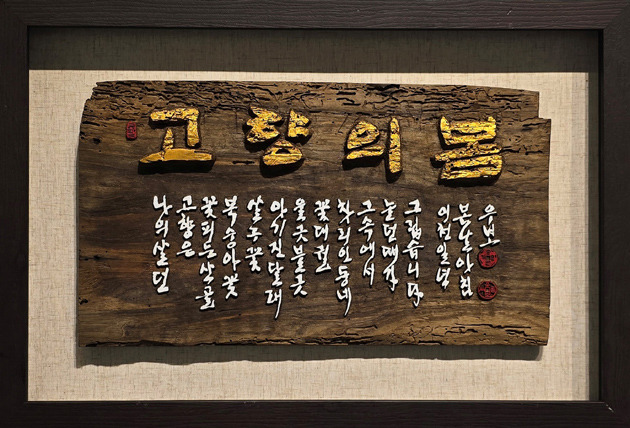 고향의봄
나의 살던
고향은
꽃피는 산골
복숭아꽃
살구꽃
아기 진달래
울긋불긋
꽃대궐
차리인 동네
그 속에서
놀던때가
그립습니다
봄날 아침
우보